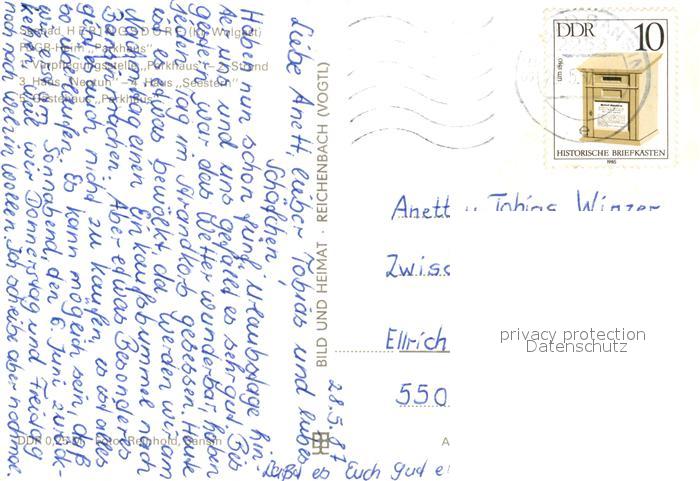 Seebad HERINGSDORF (Kr. Wolgast)
FDGB-Heim „Parkhaus"
1. Verpflegungsstelle „Parkhaus" — 2. Strand
3. Haus „Neptun" — 4. Haus „Seestern"
5. Gästehaus „Parkhaus"
28.5.87
Liebe Anett, lieber Tobias und liebes
Schäfchen!
Haben nun schon fünf Urlaubstage hin-
ter uns und uns gefällt es sehr gut. Bis
gestern war das Wetter wunderbar, haben
jeden Tag im Strandkorb gesessen. Heute
ist es etwas bewölkt, da werden wir am
Nachmittag einen Einkaufsbummel nach
machen. Aber etwas Besonderes
gibt es auch nicht zu kaufen, es ist alles
so überlaufen. Es kann möglich sein, daß
wir erst am Sonnabend, den 6. Juni zurück-
kommen, weil wir Donnerstag und Freitag
noch nach wollen. Ich schreibe aber noch mal.
Hoffe es Euch gut
DDR 0,25 M Foto: Reinhold, Bansin
BILD UND HEIMAT · REICHENBACH (VOGTL)
A
DDR 10
um 1860
HISTORISCHE BRIEFKASTEN
1985
Anett u. Tobias Winzer
Zwisc
Ellrich
550
privacy protection
Datenschutz